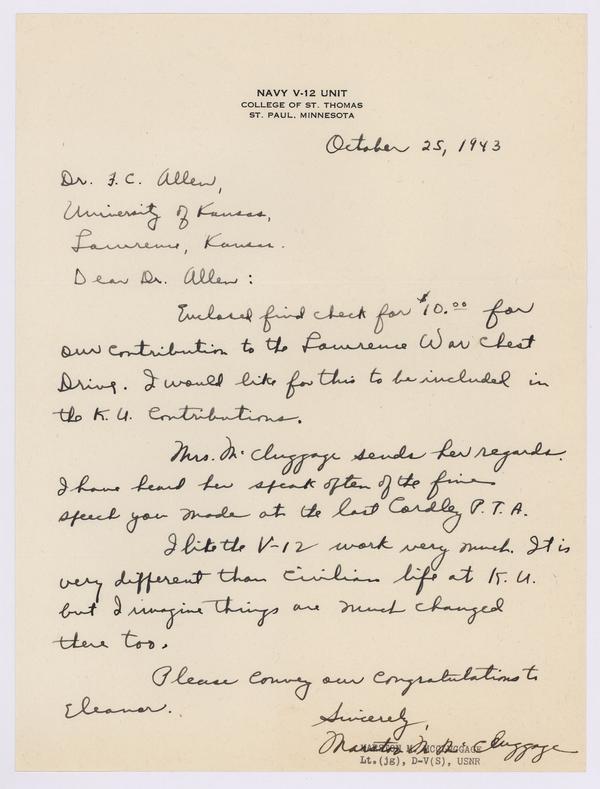 NAVY V-12 UNIT
COLLEGE OF ST. THOMAS
ST. PAUL, MINNESOTA
October 25, 1943
Dr. F. C. Allen,
University of Kansas,
Lawrence, Kansas.
Dear Dr. Allen:
Enclosed find check for $10.00 for
our contribution to the Lawrence War Chest
Drive. I would like for this to be included in
the K. U. Contributions.
Mrs. McCluggage sends her regards.
I have heard her speak often of the fine
speech you made at the last Cordley P. T. A.
I like the V-12 work very much. It is
very different than civilian life at K. U.
but I imagine things are much changed
there too.
Please convey our congratulations to
Eleanor.
Sincerely,
Marston M. McCluggage
MARSTON M. MCCLUGGAGE
Lt.(jg), D-V(S), USNR